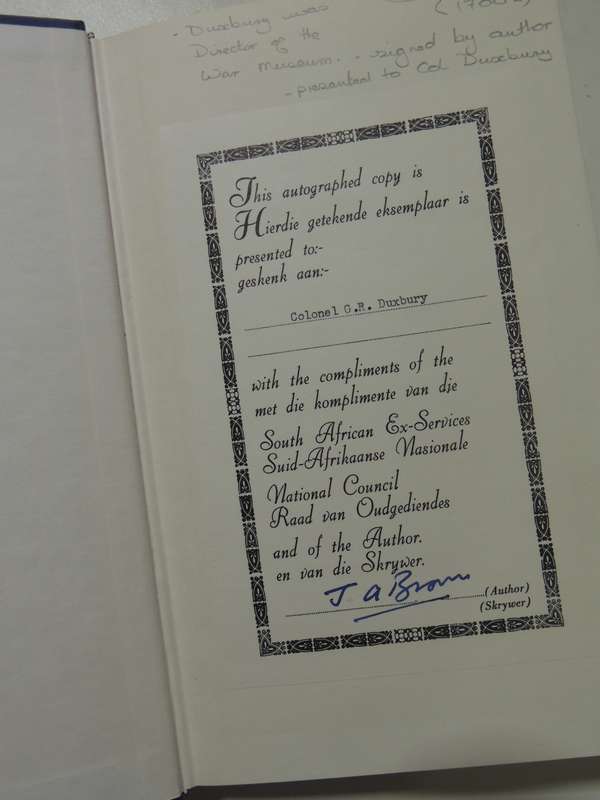 - Duxbury was
Director of the
War Museum. - signed by author
- presented to Col Duxbury
This autographed copy is
Hierdie getekende eksemplaar is
presented to:-
geskenk aan:-
Colonel G.R. Duxbury
with the compliments of the
met die komplimente van die
South African Ex-Services
Suid-Afrikaanse Nasionale
National Council
Raad van Oudgediendes
and of the Author.
en van die Skrywer.
J A Brown
(Author)
(Skrywer)